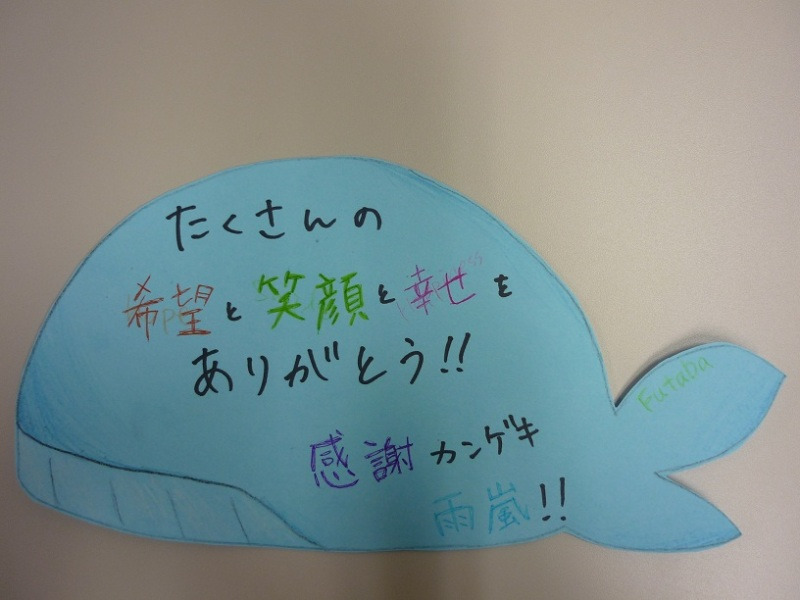 たくさんの
希望と笑顔と幸せを
ありがとう!!
感謝カンゲキ
雨嵐!!
Futaba